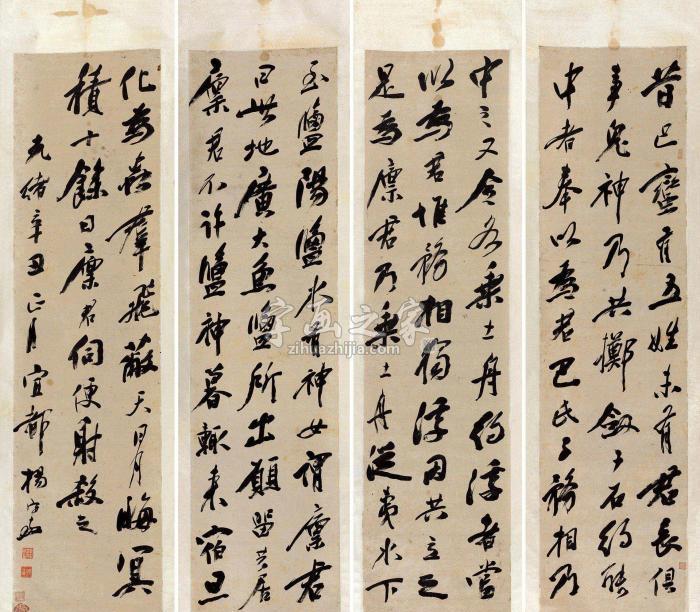 昔巴蠻有五姓未有君長俱
事鬼神乃共擲劔于石約能
中者奉以為君巴氏子務相乃
中之又令各乘土舟約浮者當
以為君惟務相獨浮因共立之
是為廩君乃乘土舟從夷水下
至鹽陽鹽水有神女謂廩君
曰此地廣大魚鹽所出願留共居
廩君不許鹽神暮輒來宿旦
化為蟲羣飛蔽天日月晦冥
積十餘日廩君伺便射殺之
光緒辛丑正月宜都楊守敬
字画之家
zihuazhijia.com